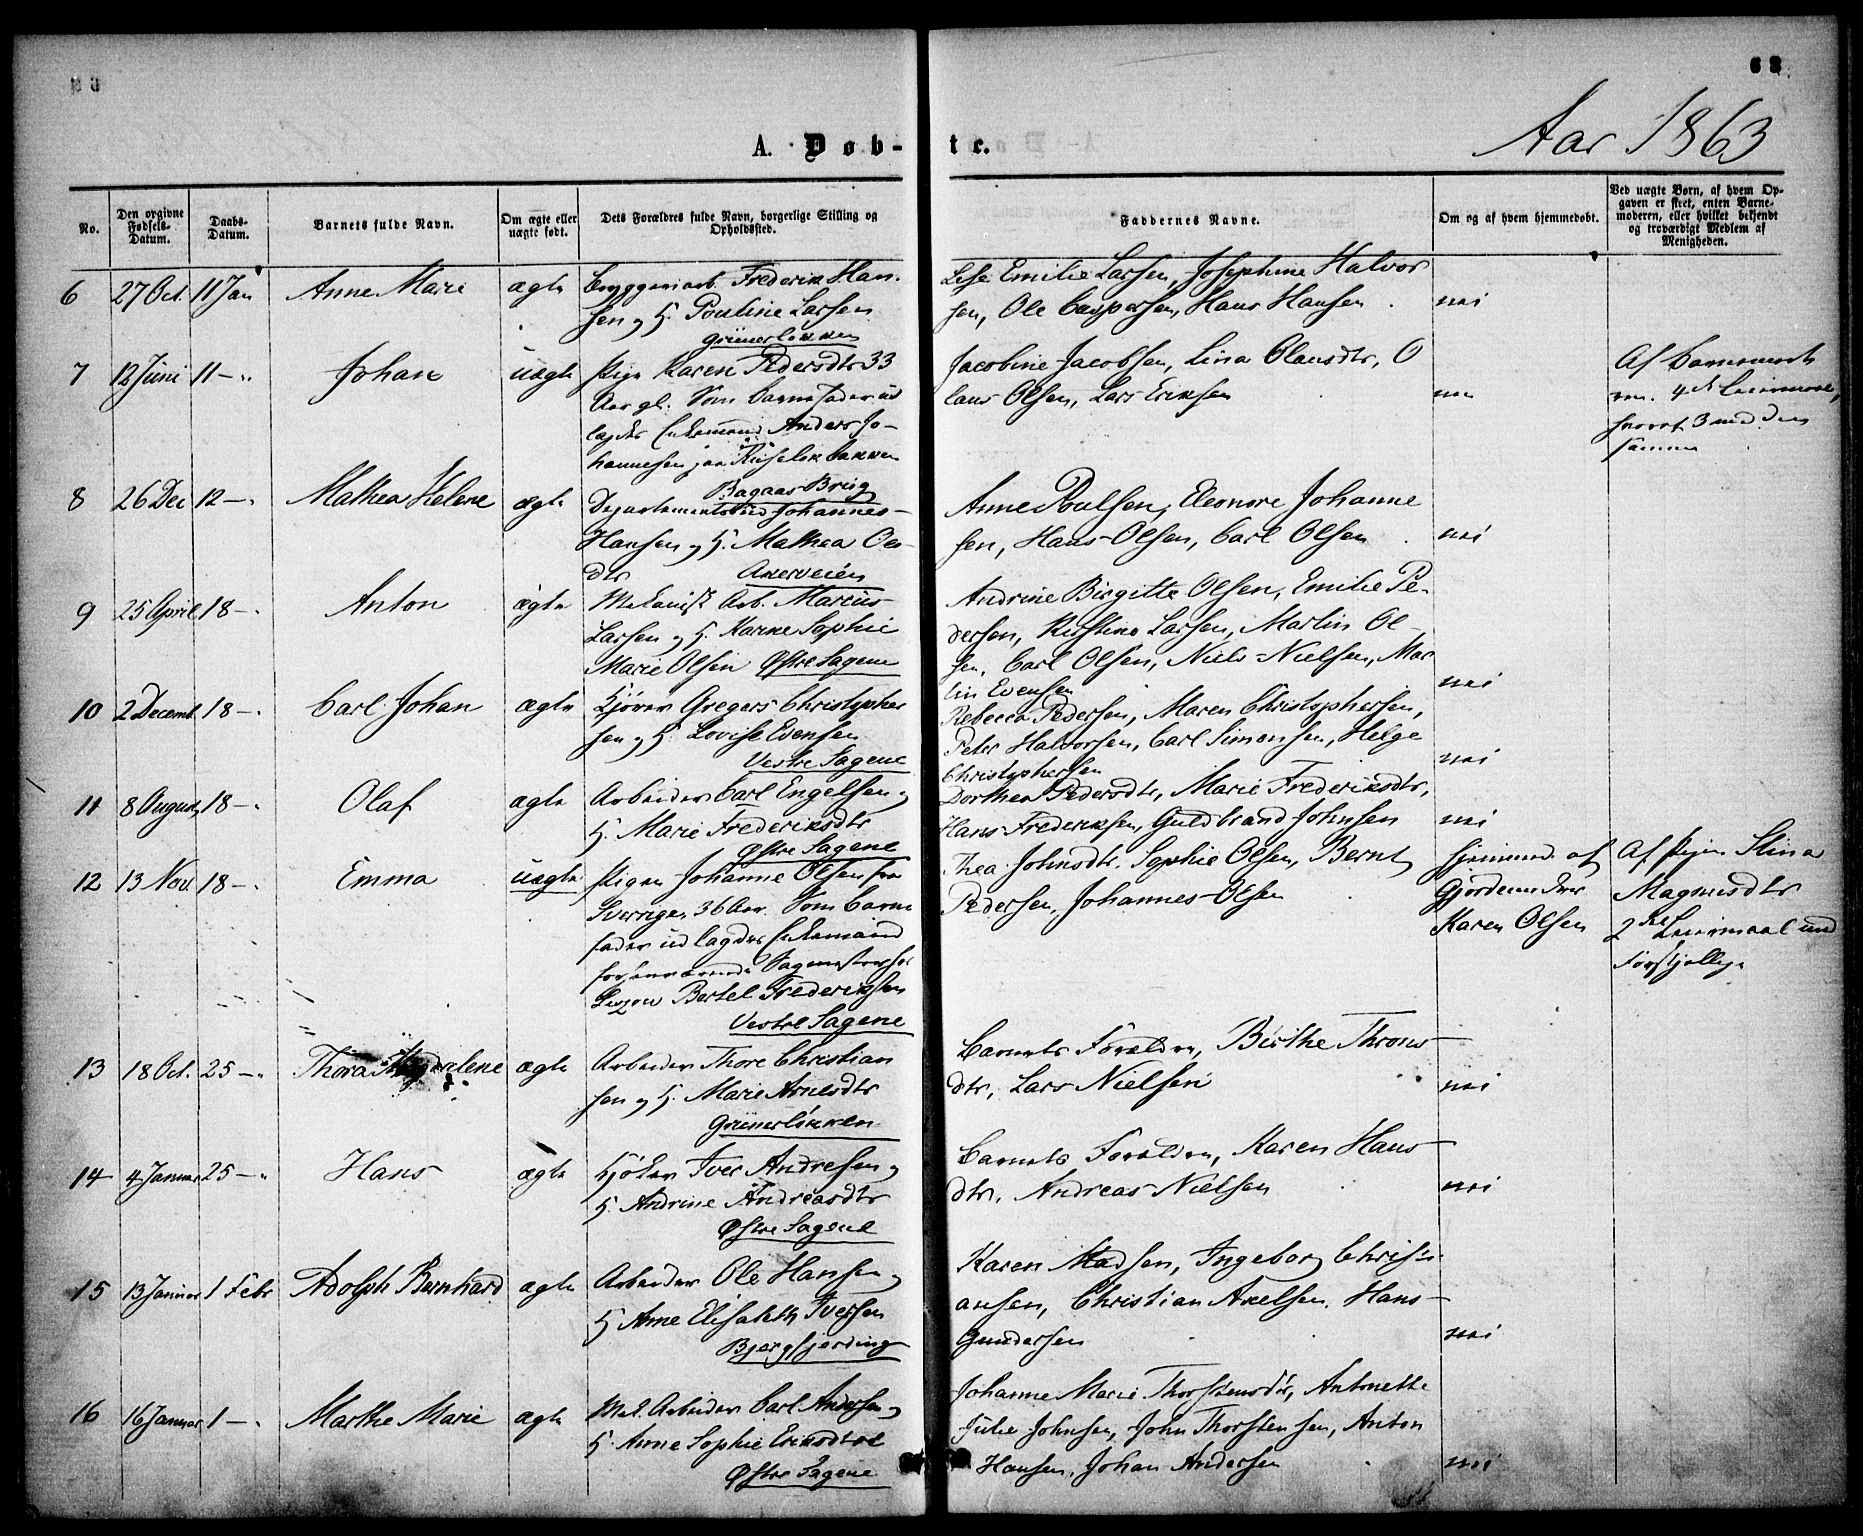 68
Aar 1863
A. Døb-
te.
No.
Den opgivne Fødsels-Datum.
Daabs-Datum.
Barnets fulde Navn.
Om ægte eller uægte født.
Dets Forældres fulde Navn, borgerlige Stilling og Opholdssted.
Faddernes Navne.
Om og af hvem hjemmedøbt.
Ved uægte Børn, af hvem Op-
gaven er skeet, enten Barne-
moderen, eller hvilket bekjendt
og troværdigt Medlem af
Menigheden.
6 27 Oct. 11 Jan Anne Marie ægte Bryggeriarb. Frederik Han-
sen og H. Pouline Larsen
Grünerløkken
Lise Emilie Larsen, Josephine Halvor
sen, Ole Caspersen, Hans Hansen nei
7 12 Juni 11 - Johan uægte Pige Karen Pedersdtr 33
Aar gl. Som Barnefader ud
lagdes Enkemand Anders Jo-
hannesen paa Ruseløkbakken
Jacobine Jacobsen, Lina Olausdtr, O
laus Olsen, Lars Eriksen
Af Barnemode
ren. 4de Leiermaal,
hvoraf 3 med den
samme
8 26 Dec 12 - Mathea Helene ægte
Departementsbud Johannes
Hansen og H. Mathea Ols-
dtr Akerveien
Anne Poulsen, Eleonore Johanne
sen, Hans Olsen, Carl Olsen nei
9 25 April 18 - Anton ægte Mekanisk Arb. Marcus
Larsen og H. Karine Sophie
Marie Olsen Østre Sagene
Andrine Birgitte Olsen, Emilie Pe-
dersen, Kirstine Larsen, Martin Ol-
sen, Carl Olsen, Niels Nielsen, Mar
tin Evensen nei
10 2 Decemb. 18 - Carl Johan ægte Kjører Gregers Christopher
sen og H. Lovise Evensen
Vestre Sagene
Rebecca Pedersen, Maren Christophersen,
Peter Halvorsen, Carl Simonsen, Helge
Christophersen nei
11 8 August 18 - Olaf ægte Arbeider Carl Engelsen og
H. Marie Frederiksdtr
Østre Sagene
Dorthea Pedersdtr, Marie Frederiksdtr,
Hans Frederiksen, Guldbrand Johnsen nei
12 13 Nov. 18 - Emma uægte Pigen Johanne Olsen fra
Sverrige, 36 Aar. Som Barne
fader udlagdes Enkemand
Bertel Frederiksen
Vestre Sagene
Thea Johnsdtr. Sophie Olsen, Bernt
Pedersen, Johannes Olsen
Hjemmed. af
Gjordemoder
Karen Olsen
Af Pigen Stina
Magnusdtr
2det Leiermaal med
Forskjellige
13 18 Oct. 25 - Thora ægte Arbeider Thore Christian
sen og H. Marie Arnesdtr
Grünerløkken
Barnets Forældre, Birthe Throns
dtr, Lars Nielsen nei
14 4 Januar 25 - Hans ægte Kjøker Iver Andresen og
H. Andrine Andreasdtr
Østre Sagene
Barnets Forældre, Karen Hans
dtr, Andreas Nielsen nei
15 13 Januar 1 Febr Adolph Bernhard ægte Arbeider Ole Hansen og
H. Anne Elisabeth Iversen
Bjergfjerding
Karen Madsen, Ingeborg Christi
ansen, Christian Axelsen, Hans
Gundersen nei
16 16 Januar 1 - Marthe Marie ægte Mek. Arbeider Carl Andersen og
H. Anne Sophie Eriksdtr
Østre Sagene
Johanne Marie Thorstensdtr, Antonette
Julie Johnsen, John Thorstensen, Anton
Hansen, Johan Andersen nei